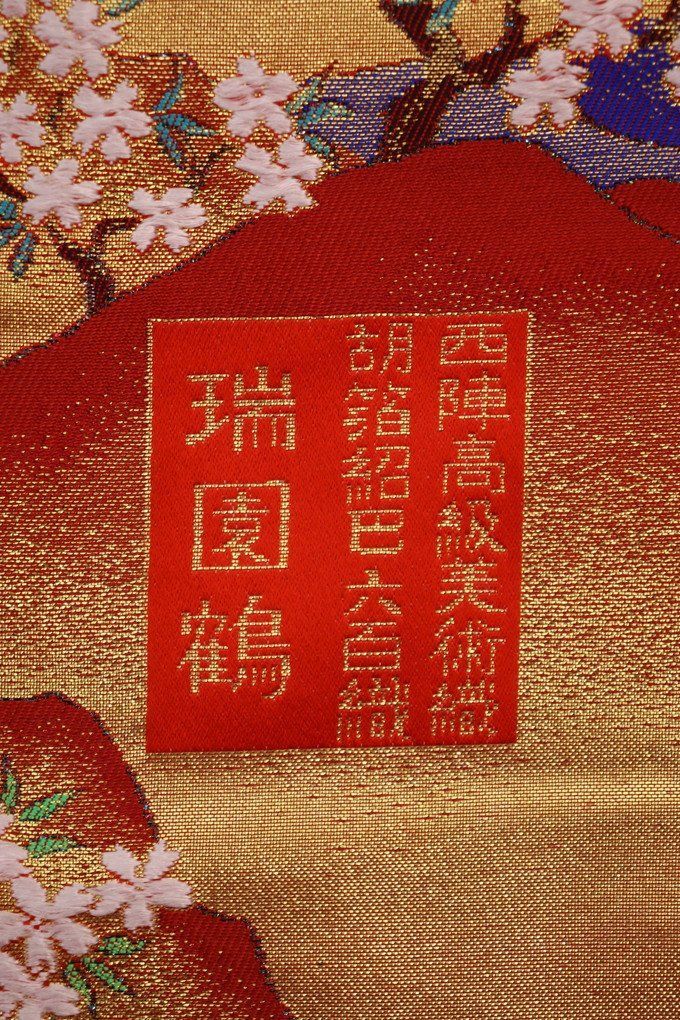 西陣高級美術織
胡箔紹巴六百織
瑞園鶴